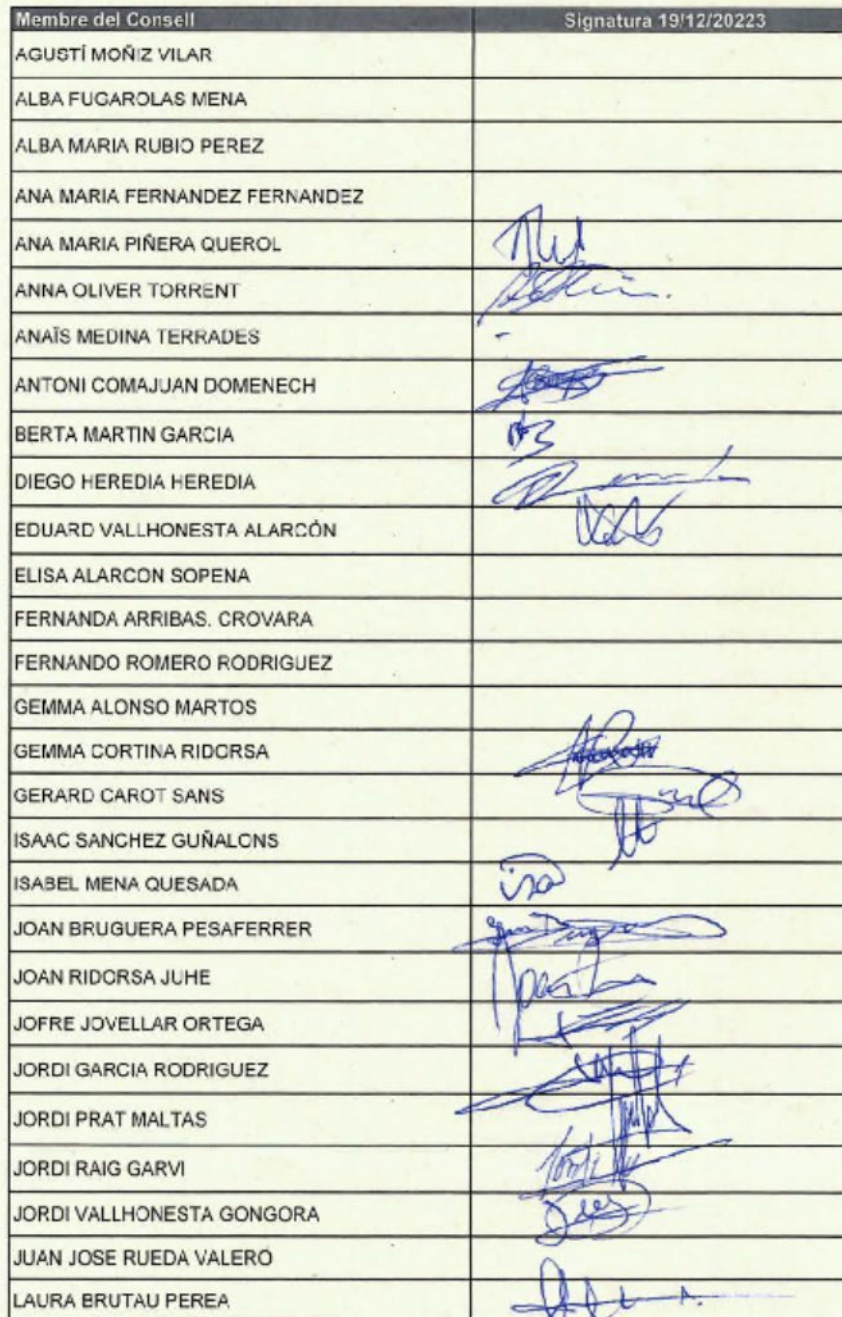 Membre del Consell Signatura 19/12/20223
AGUSTÍ MOÑIZ VILAR
ALBA FUGAROLAS MENA
ALBA MARIA RUBIO PEREZ
ANA MARIA FERNANDEZ FERNANDEZ
ANA MARIA PIÑERA QUEROL
ANNA OLIVER TORRENT
ANAÏS MEDINA TERRADES -
ANTONI COMAJUAN DOMENECH
BERTA MARTIN GARCIA
DIEGO HEREDIA HEREDIA
EDUARD VALLHONESTA ALARCÓN
ELISA ALARCON SOPENA
FERNANDA ARRIBAS. CROVARA
FERNANDO ROMERO RODRIGUEZ
GEMMA ALONSO MARTOS
GEMMA CORTINA RIDORSA
GERARD CAROT SANS
ISAAC SANCHEZ GUÑALONS
ISABEL MENA QUESADA isa
JOAN BRUGUERA PESAFERRER
JOAN RIDORSA JUHE
JOFRE JOVELLAR ORTEGA
JORDI GARCIA RODRIGUEZ
JORDI PRAT MALTAS
JORDI RAIG GARVI
JORDI VALLHONESTA GONGORA
JUAN JOSE RUEDA VALERO
LAURA BRUTAU PEREA